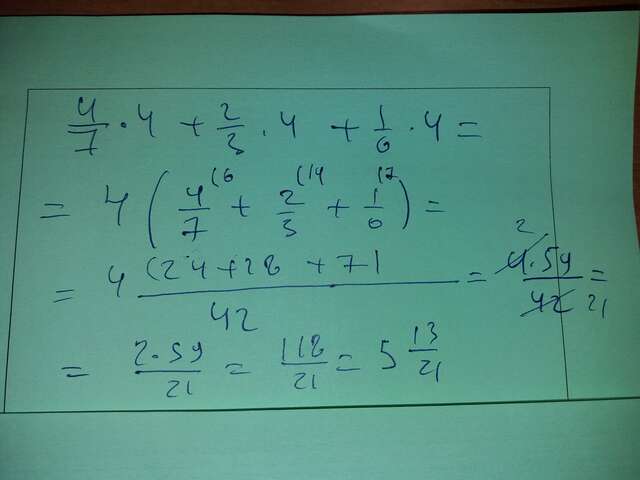 4/7 · 4 + 2/3 · 4 + 1/6 · 4 =
= 4 ( 4/7 (6 + 2/3 (14 + 1/6 (7 ) =
= 4 (24 + 28 + 7) / 42 = 4 · 59 / 42 2 21 =
= 2 · 59 / 21 = 118 / 21 = 5 13/21